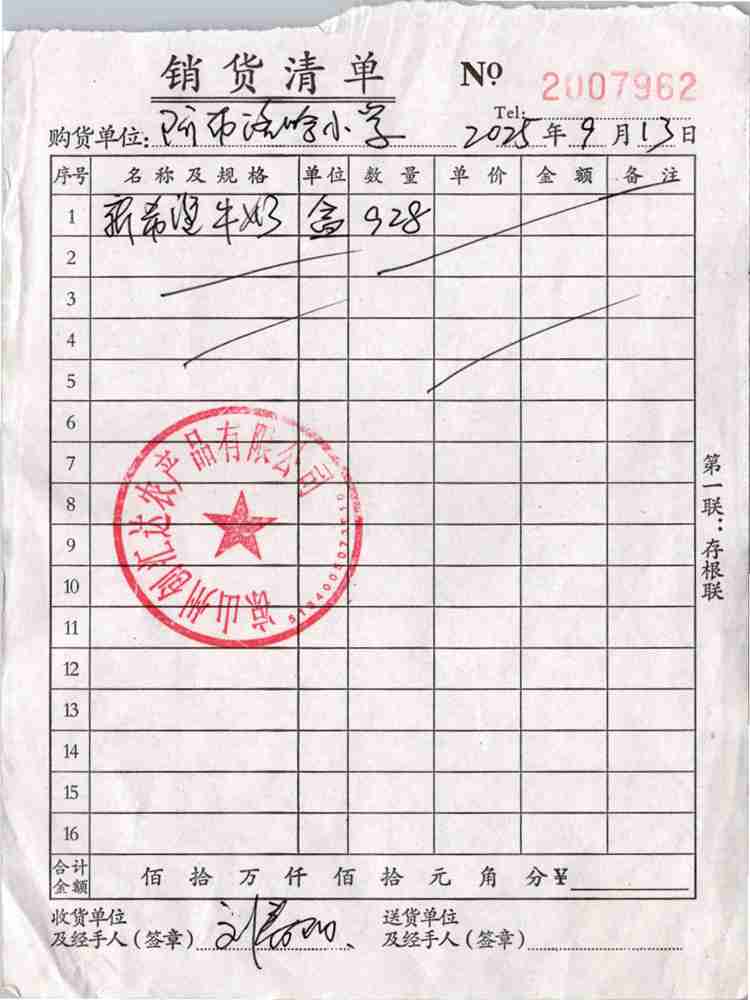 销货清单 № 2007962
Tel:
购货单位: 阿布洛哈小学 2025年9月13日
序号 名称及规格 单位 数量 单价 金额 备注
1 新希望牛奶 盒 928
2
3
4
5
6
7
8
9
10
11
12
13
14
15
16
凉山州创汇达农产品有限公司
合计金额 佰 拾 万 仟 佰 拾 元 角 分 ¥
收货单位
及经手人(签章)
送货单位
及经手人(签章)
第一联：存根联